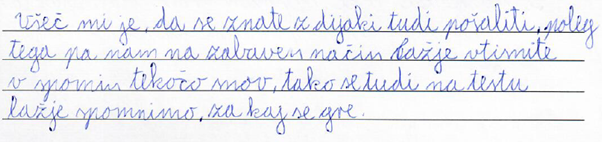 Všeč mi je, da se znate z dijaki tudi pošaliti, poleg
tega pa nam na zabaven način lažje vtisnite
v spomin tekočo snov, tako se tudi na testu
lažje spomnimo, za kaj se gre.